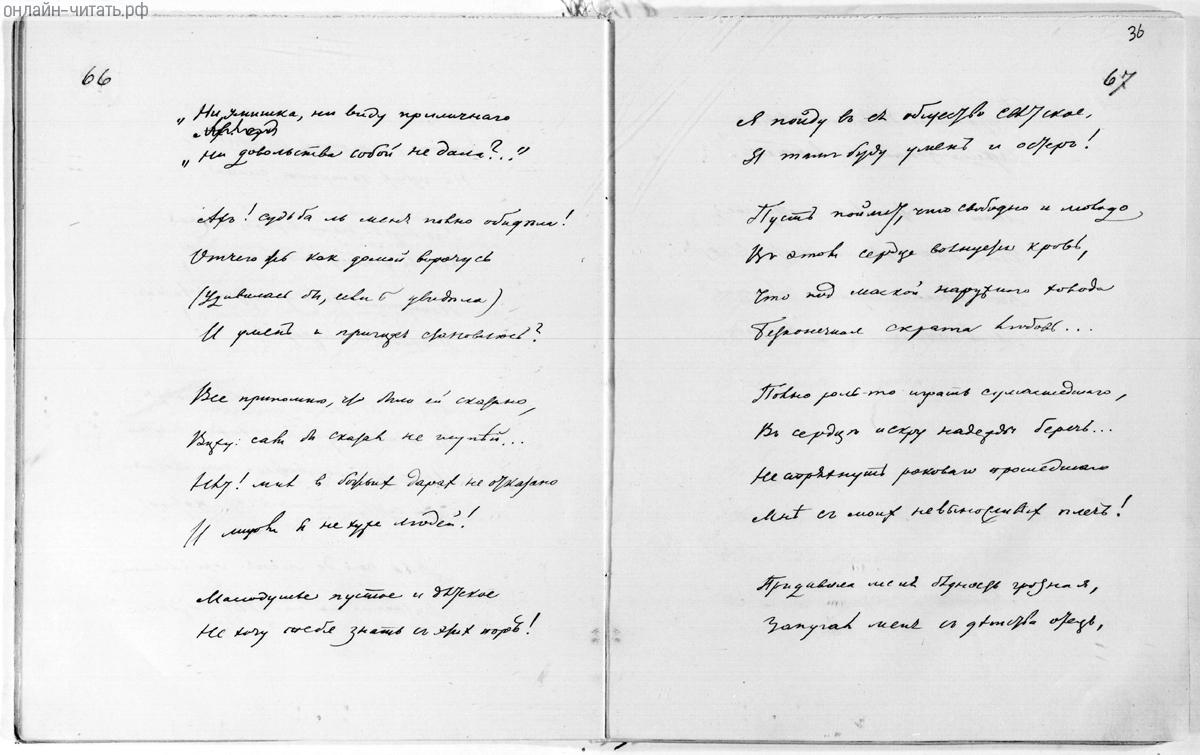 онлайн-читать.рф
66
„Ни умишка, ни виду приличнаго
„Ни довольства собой не дала?.."
Ахъ! судьба ль меня полно обидѣла!
Отчего жъ какъ домой ворочусь
(Удивилась бы, если б увидѣла)
И уменъ и пригожъ становлюсь?
Все припомню, что было ей сказано,
Вижу: самъ бы сказалъ не глупѣй...
Нѣт! мнѣ в божьих дарах не отказано
И лицомъ я не хуже людей!
Малодушье пустое и дѣтское
Не хочу тебя знать съ этих поръ!
36
67
Я пойду въ ея общество свѣтское,
Я тамъ буду уменъ и остеръ!
Пусть поймет, что свободно и молодо
Въ этом сердце волнуется кровь,
Что под маской наружнаго холода
Безконечная скрыта любовь...
Полно роль-то играть сумасшедшаго,
Въ сердцѣ искру надежды беречь...
Не стряхнуть роковаго прошедшаго
Мнѣ съ моих невыносливых плечъ!
Придавила меня бѣдность грозная,
Запугал меня съ дѣтства отецъ,